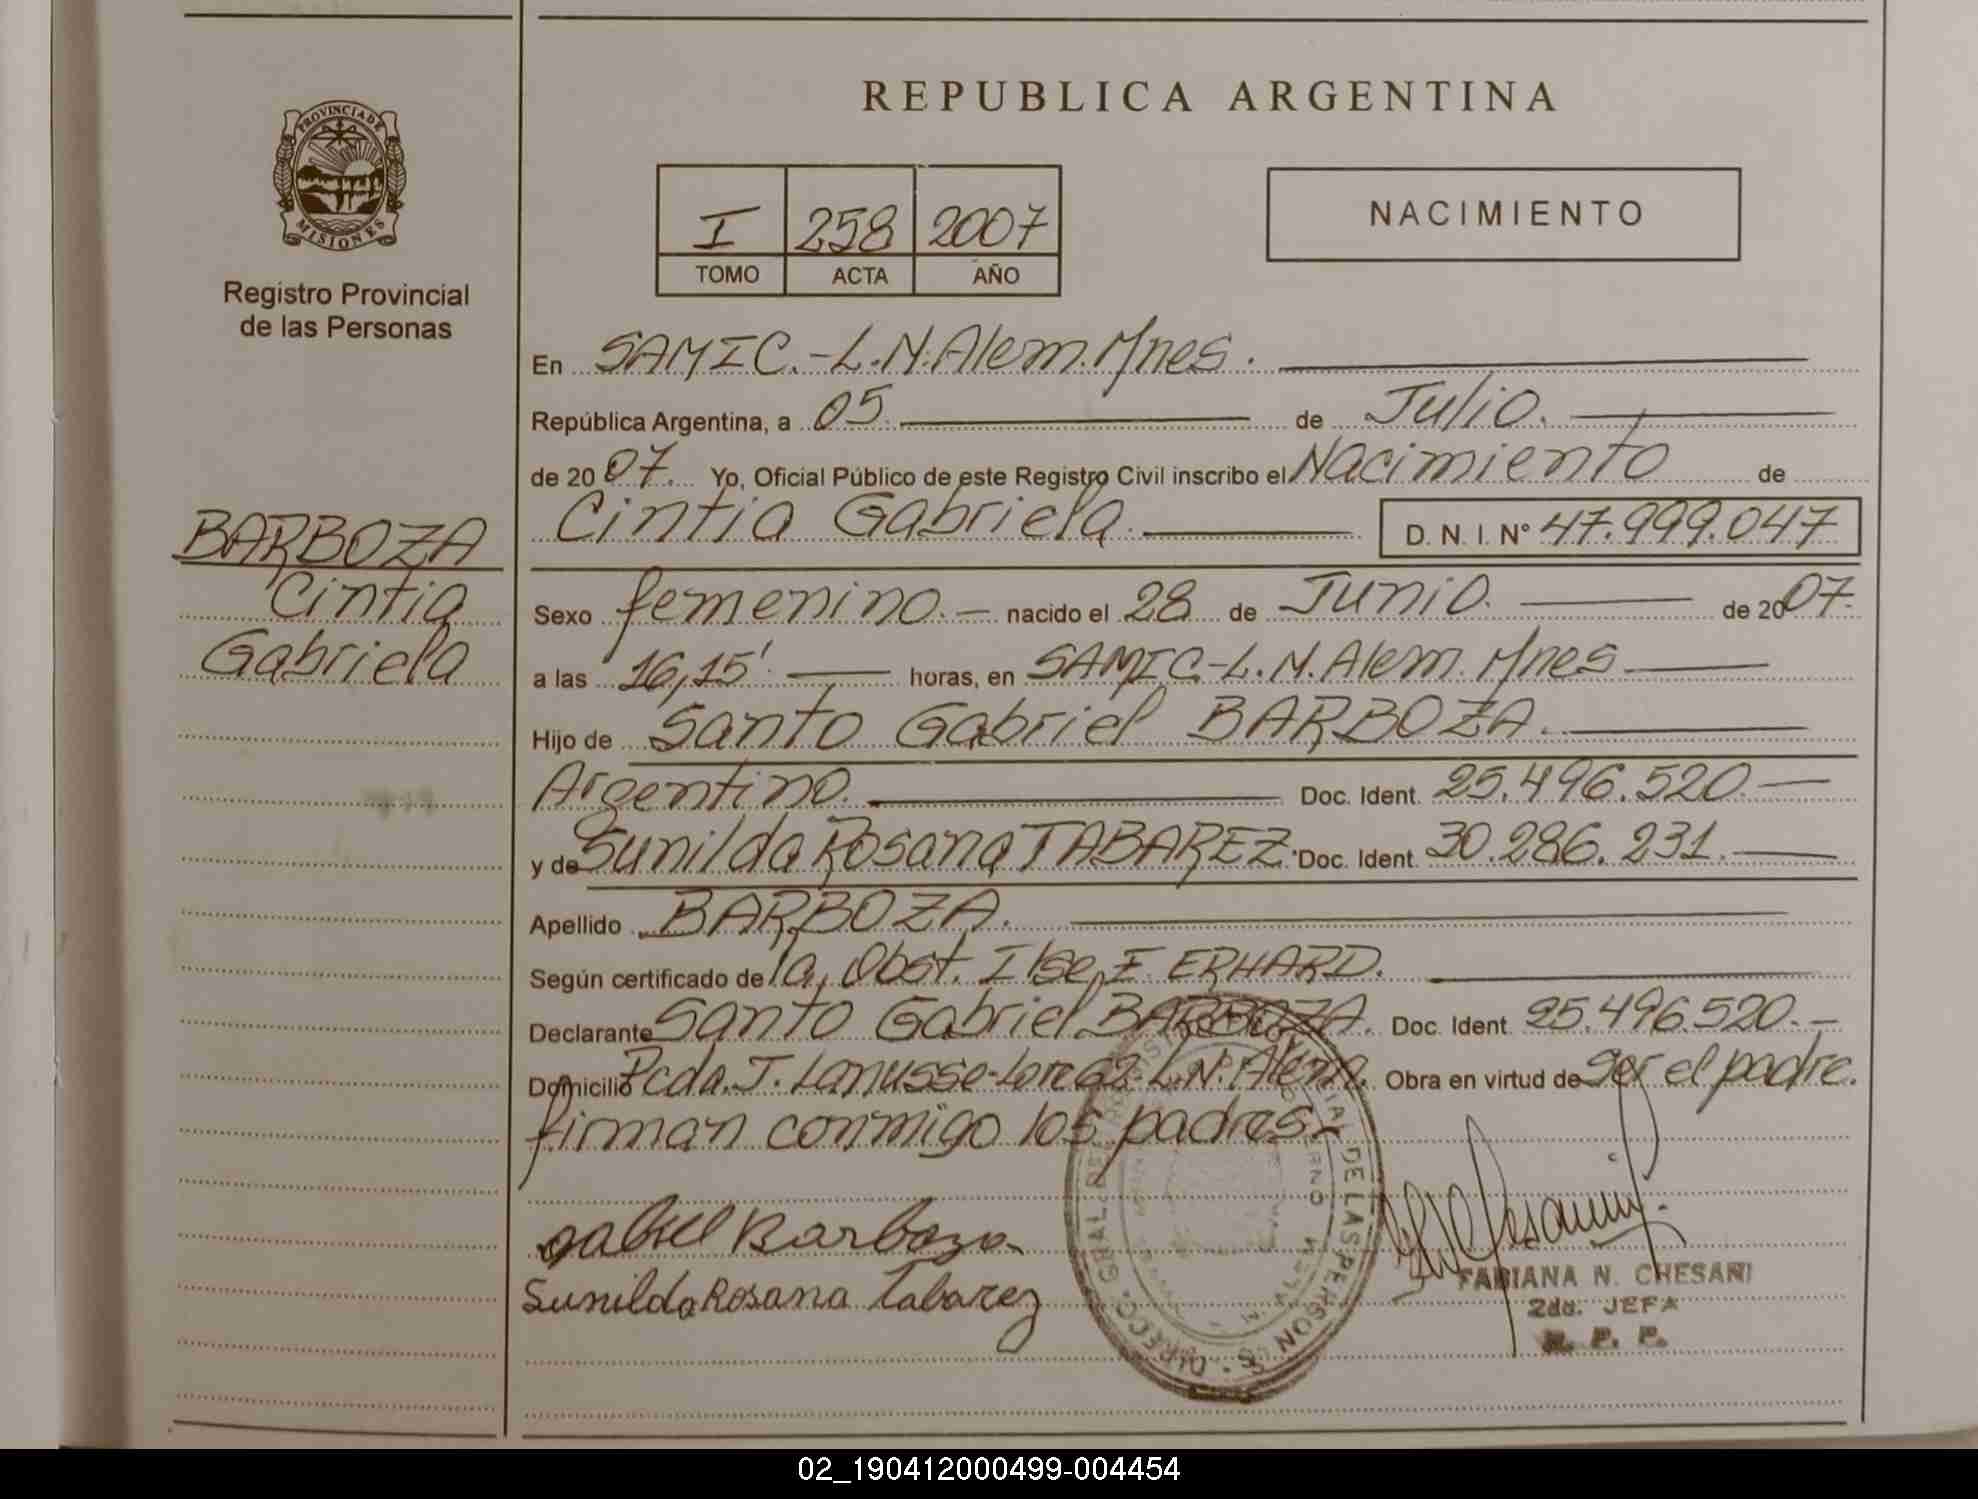 REPUBLICA ARGENTINA
PROVINCIA DE
MISIONES
Registro Provincial
de las Personas
I 258 2007
TOMO ACTA AÑO
NACIMIENTO
En SAMIC.-L.N.Alem.Mnes.
República Argentina, a 05. de Julio.
de 2007. Yo, Oficial Público de este Registro Civil inscribo el Nacimiento de
Cintia Gabriela. D. N. I. N° 47.999.047
BARBOZA
Cintia
Gabriela
Sexo femenino.- nacido el 28 de Junio. de 2007.
a las 16,15' horas, en SAMIC-L.N.Alem.Mnes
Hijo de Santo Gabriel BARBOZA.
Argentino. Doc. Ident. 25.496.520.
y de Sunilda Rosana TABAREZ. Doc. Ident. 30.286.231.
Apellido BARBOZA.
Según certificado de la Obst. Ilse E. ERHARD.
Declarante Santo Gabriel BARBOZA. Doc. Ident 25.496.520.-
Domicilio Pcda. T. Lanusse- L.N.Alem. Obra en virtud de ser el padre.
firman conmigo los padres
gabriel Barboza
Sunilda Rosana Tabarez
DIRECC. GRAL. DE LAS PERSONAS
FABIANA N. CHESANI
2da. JEFA
R. P. P.
02_190412000499-004454